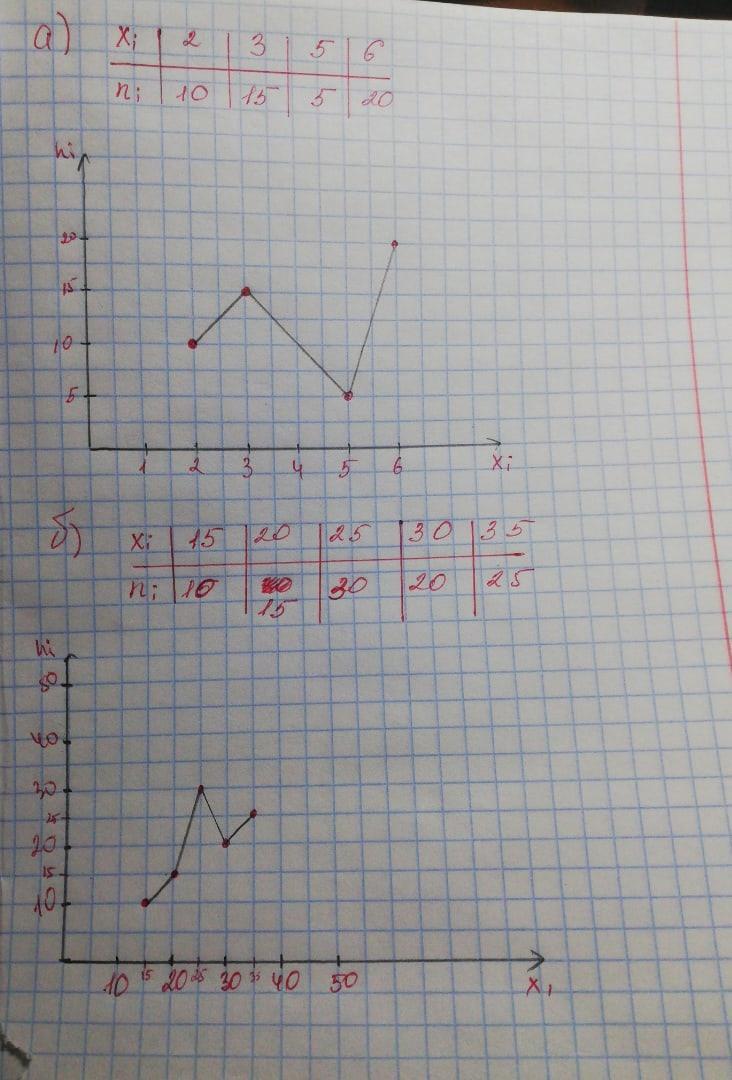 а) xi 2 3 5 6
ni 10 15 5 20
ni
20
15
10
5
1 2 3 4 5 6 xi
б) xi 15 20 25 30 35
ni 10 30 20 25
15
ni
50
40
30
25
20
15
10
10 15 20 25 30 35 40 50 xi